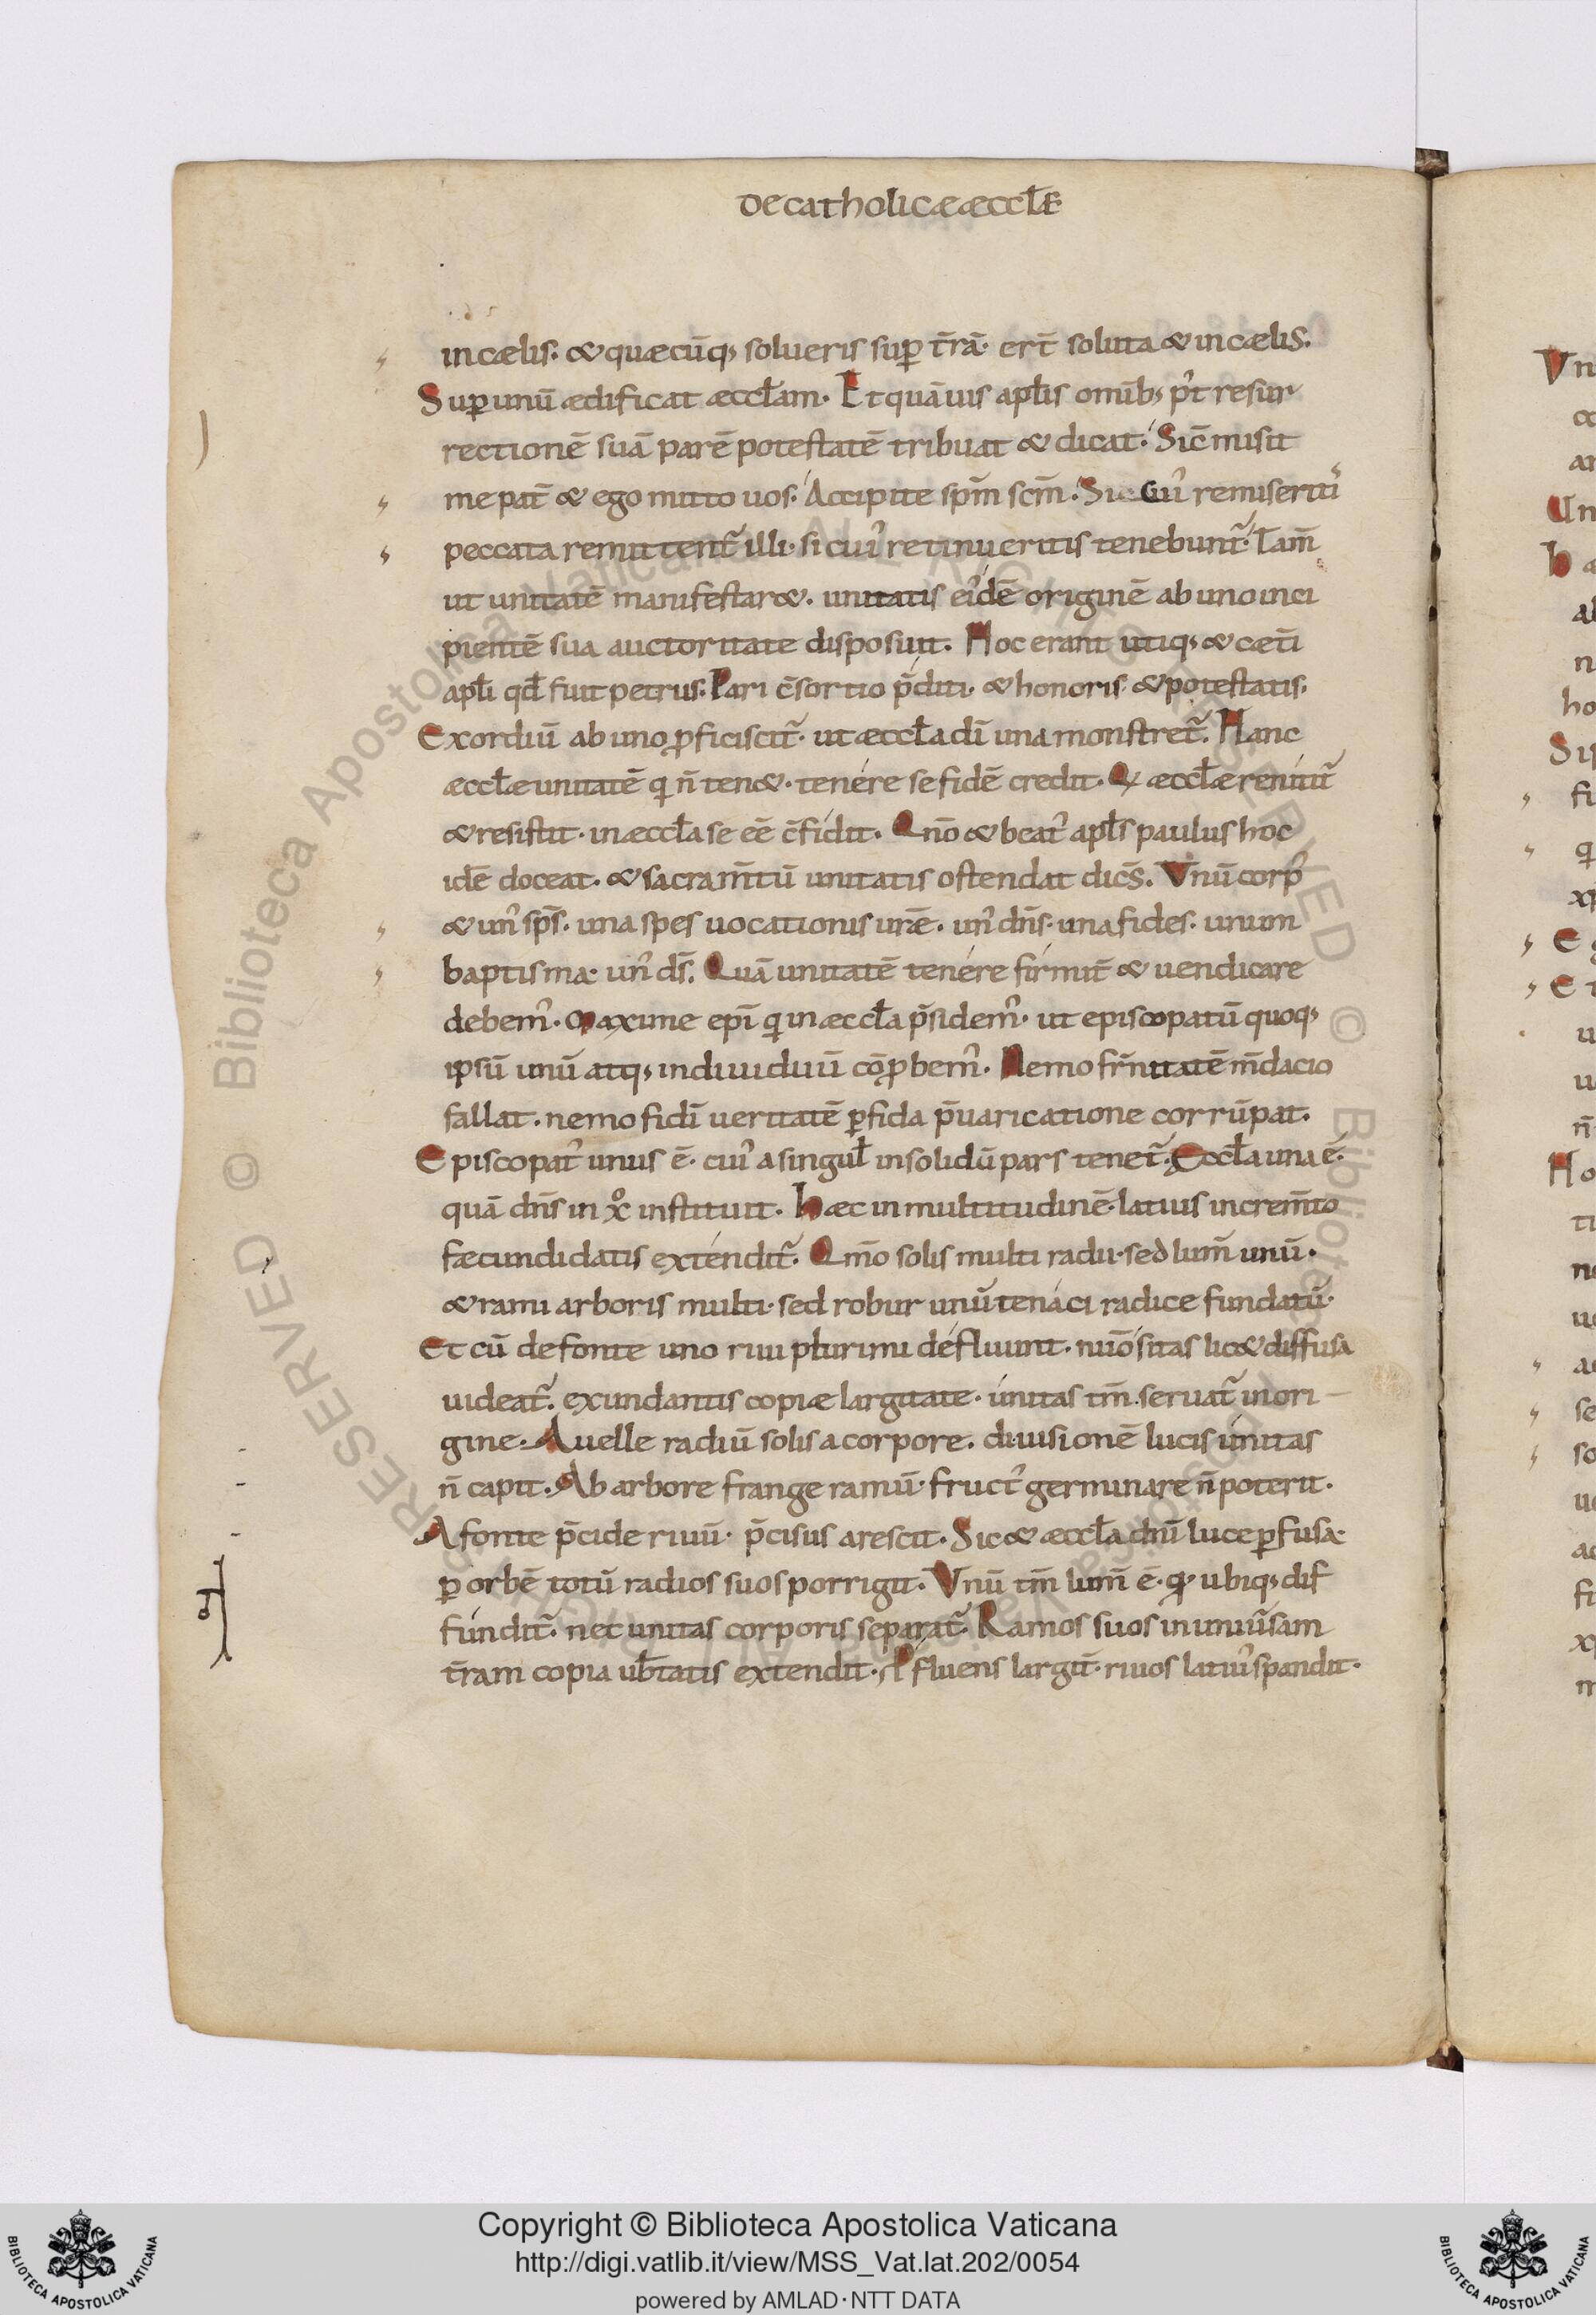 De catholicæ æccłe
in cælis. & quæcūq; solueris suꝑ t̄rā. erit̄ soluta & in cælis.
Suꝑ unū ædificat æccłam. Et quāuis aplis omīb; p't resur
rectionē suā parē potestatē tribuat & dicat. Sic̄ misit
me pat̄ & ego mitto uos. Accipite spm̄ scm̄. Si cui' remiseriti'
peccata remittent' illi. si cui' retinueritis tenebunt'. Tam̄
ut unitatē manifestar&. unitatis ei'dē originē ab uno inci
pientē sua auctoritate disposuit. Hoc erant utiq; & cæt̄i
apłi qđ fuit petrus. Pari c̄sortio p̄diti. & honoris & potestatis.
Exordiū ab uno ꝓficiscit'. ut æccła dī una monstret'. Hanc
æccłæ unitatē q n̄ ten&. tenére se fidē credit. Q æccłæ renitit'
& resistit. in æccła se eē c̄fidit. Qn̄o & beat' apłs paulus hoc
idē doceat. & sacram̄tū unitatis ostendat dic̄s. Vnū corp'
& un' sps̄. una spes uocationis urǣ. un' dn̄s. una fides. unum
baptisma. un' ds̄. Quā unitatē tenére firmit̄ & uendicare
debem'. Maxime epī q in æccła p̄sidem'. ut episcopatū quoq;
ipsū unū atq; indiuiduū cōꝓbem'. Nemo fr̄nitatē m̄dacio
fallat. nemo fidī ueritatē ꝑfida p̄uaricatione corrūpat.
Episcopat' unus ē. cui' a singuł in solidū pars tenet'. Eccła una ē.
quā dn̄s in xº instituit. Hæc in multitudinē latius increm̄to
fæcundidatis exténdit'. Qm̄o solis multi radii. sed lum̄ unū.
& rami arboris multi. sed robur unū tenáci radice fundatū.
Et cū de fonte uno riui plurimi défluunt. num̄ositas lic& diffusa
uideat'. exundantis copiæ largitate. únitas tm̄ seruat' in ori-
gine. Auelle radiū solis a corpore. diuisionē lucis únitas
n̄ capit. Ab arbore frange ramū. fruct' germinare n̄ poterit.
A fonte p̄cide riuū. p̄cisus arescit. Sic & æccła dn̄ī luce ꝑfusa.
ꝑ orbē totū radios suos porrigit. Vnū tm̄ lum̄ ē. qđ ubiq; dif
fúndit'. nec unitas corporis separat'. Ramos suos in uniu'sam
t̄ram copia ub̄tatis extendit. Ꝓfluens largit̄. riuos latiu' spandit.
Copyright © Biblioteca Apostolica Vaticana
http://digi.vatlib.it/view/MSS_Vat.lat.202/0054
powered by AMLAD·NTT DATA